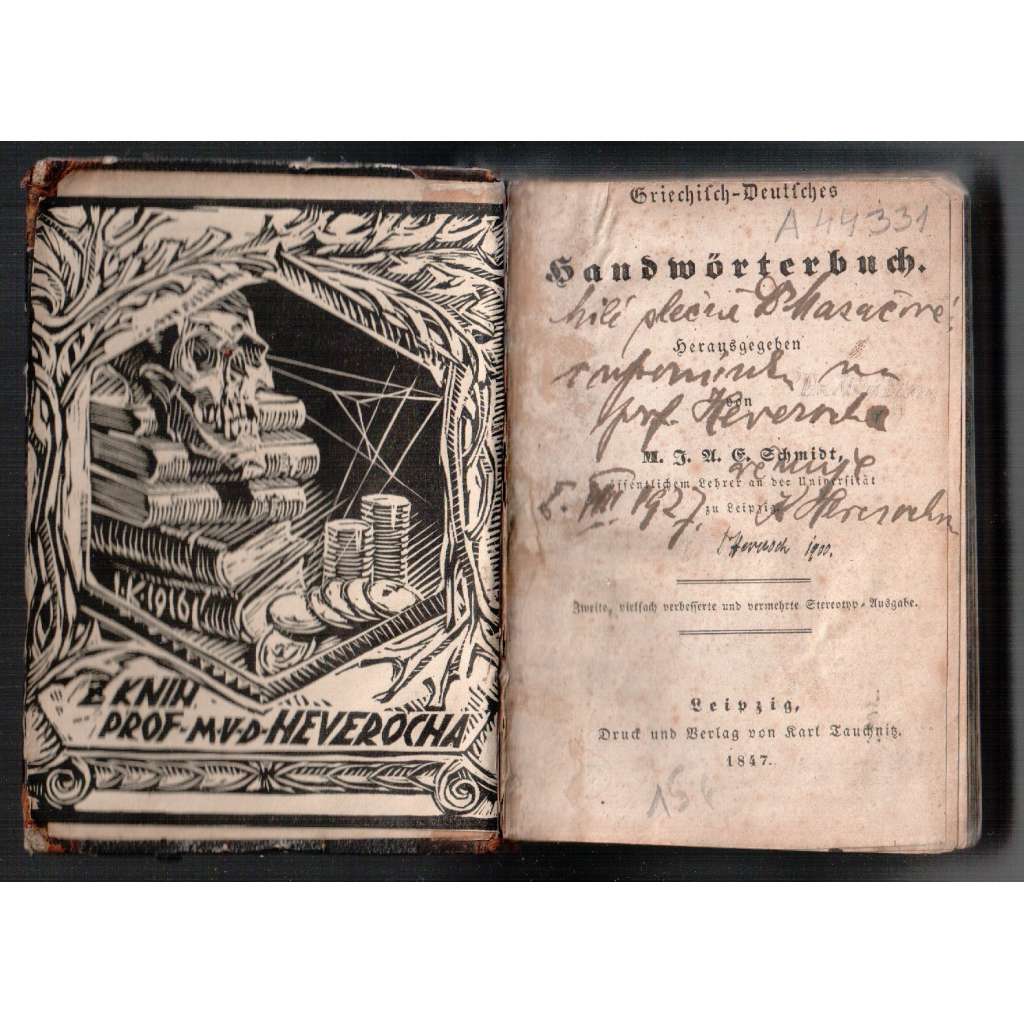 I·K·1916
Z KNIH
PROF·M·U·D·HEVEROCHA
Griechisch-Deutsches
A 44331
Handwörterbuch.
milé slečně
Herausgegeben
vzpomínka na
von
prof. Heverocha
M. J. A. E. Schmidt,
věnuje
öffentlichem Lehrer an der Universität
zu Leipzig.
5. XII 1927. Heverochu
Heveroch 1900.
Zweite, vielfach verbesserte und vermehrte Stereotyp-Ausgabe.
Leipzig,
Druck und Verlag von Karl Tauchnitz.
1847.